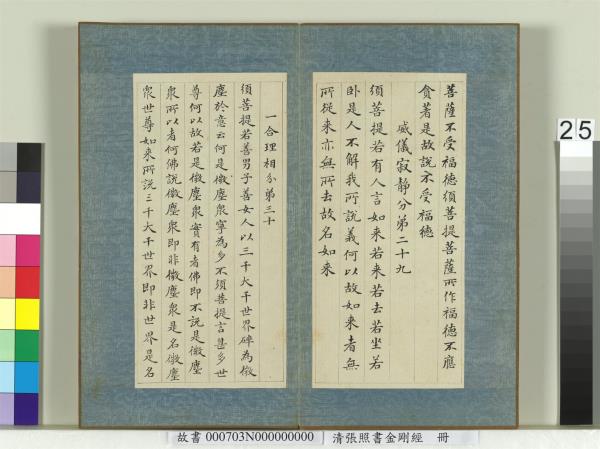 菩薩不受福德須菩提菩薩所作福德不應
貪著是故說不受福德
威儀寂靜分第二十九
須菩提若有人言如來若來若去若坐若
卧是人不解我所說義何以故如來者無
所從來亦無所去故名如來
一合理相分第三十
須菩提若善男子善女人以三千大千世界碎為微
塵於意云何是微塵眾寧為多不須菩提言甚多世
尊何以故若是微塵眾實有者佛即不說是微塵
眾所以者何佛說微塵眾即非微塵眾是名微塵
眾世尊如來所說三千大千世界即非世界是名
25
故書 000703N000000000 清張照書金剛經 冊